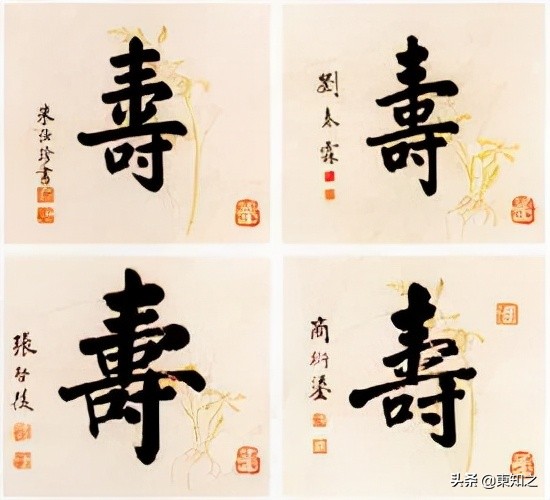 壽
朱汝珍書
壽
劉春霖
壽
張啓後
壽
商衍鎏
头条 @東知之